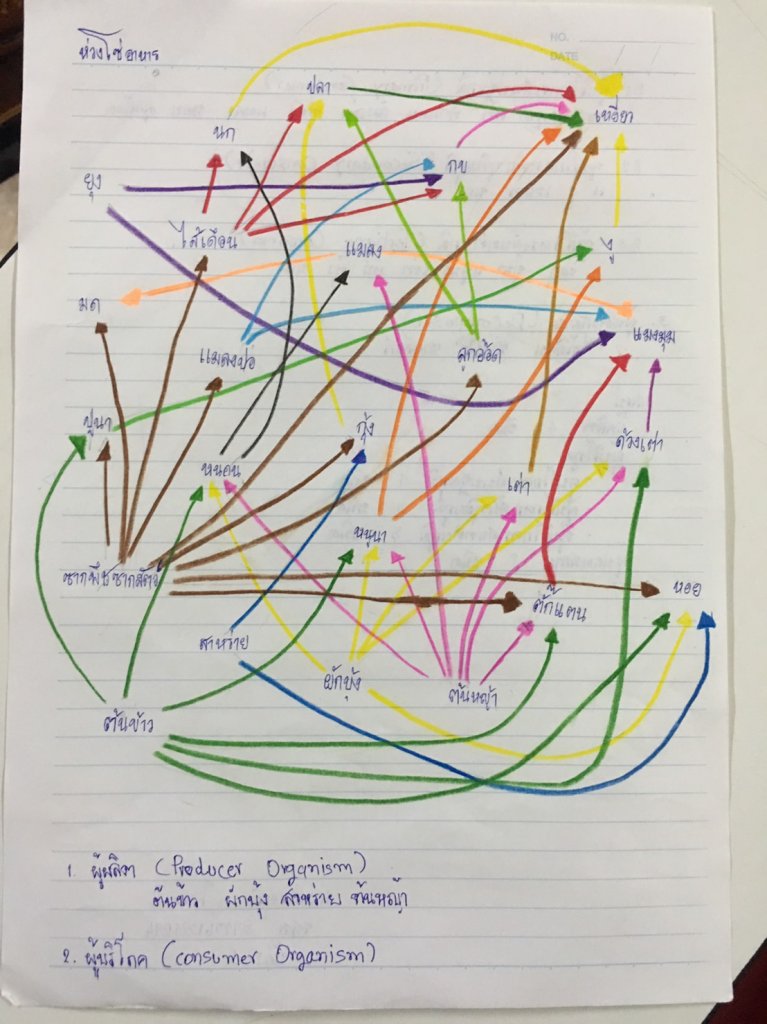 ห่วงโซ่อาหาร
NO.
DATE
ปลา
เหยี่ยว
นก
กบ
ยุง
ไส้เดือน
แมลง
งู
มด
แมลงปอ
ลูกอ๊อด
แมงมุม
ปูนา
กุ้ง
ด้วงเต่า
หนอน
เต่า
หนูนา
ซากพืชซากสัตว์
ตั๊กแตน
หอย
สาหร่าย
ผักบุ้ง
ต้นหญ้า
ต้นข้าว
1. ผู้ผลิต (Producer Organism)
ต้นข้าว ผักบุ้ง สาหร่าย ต้นหญ้า
2. ผู้บริโภค (consumer Organism)